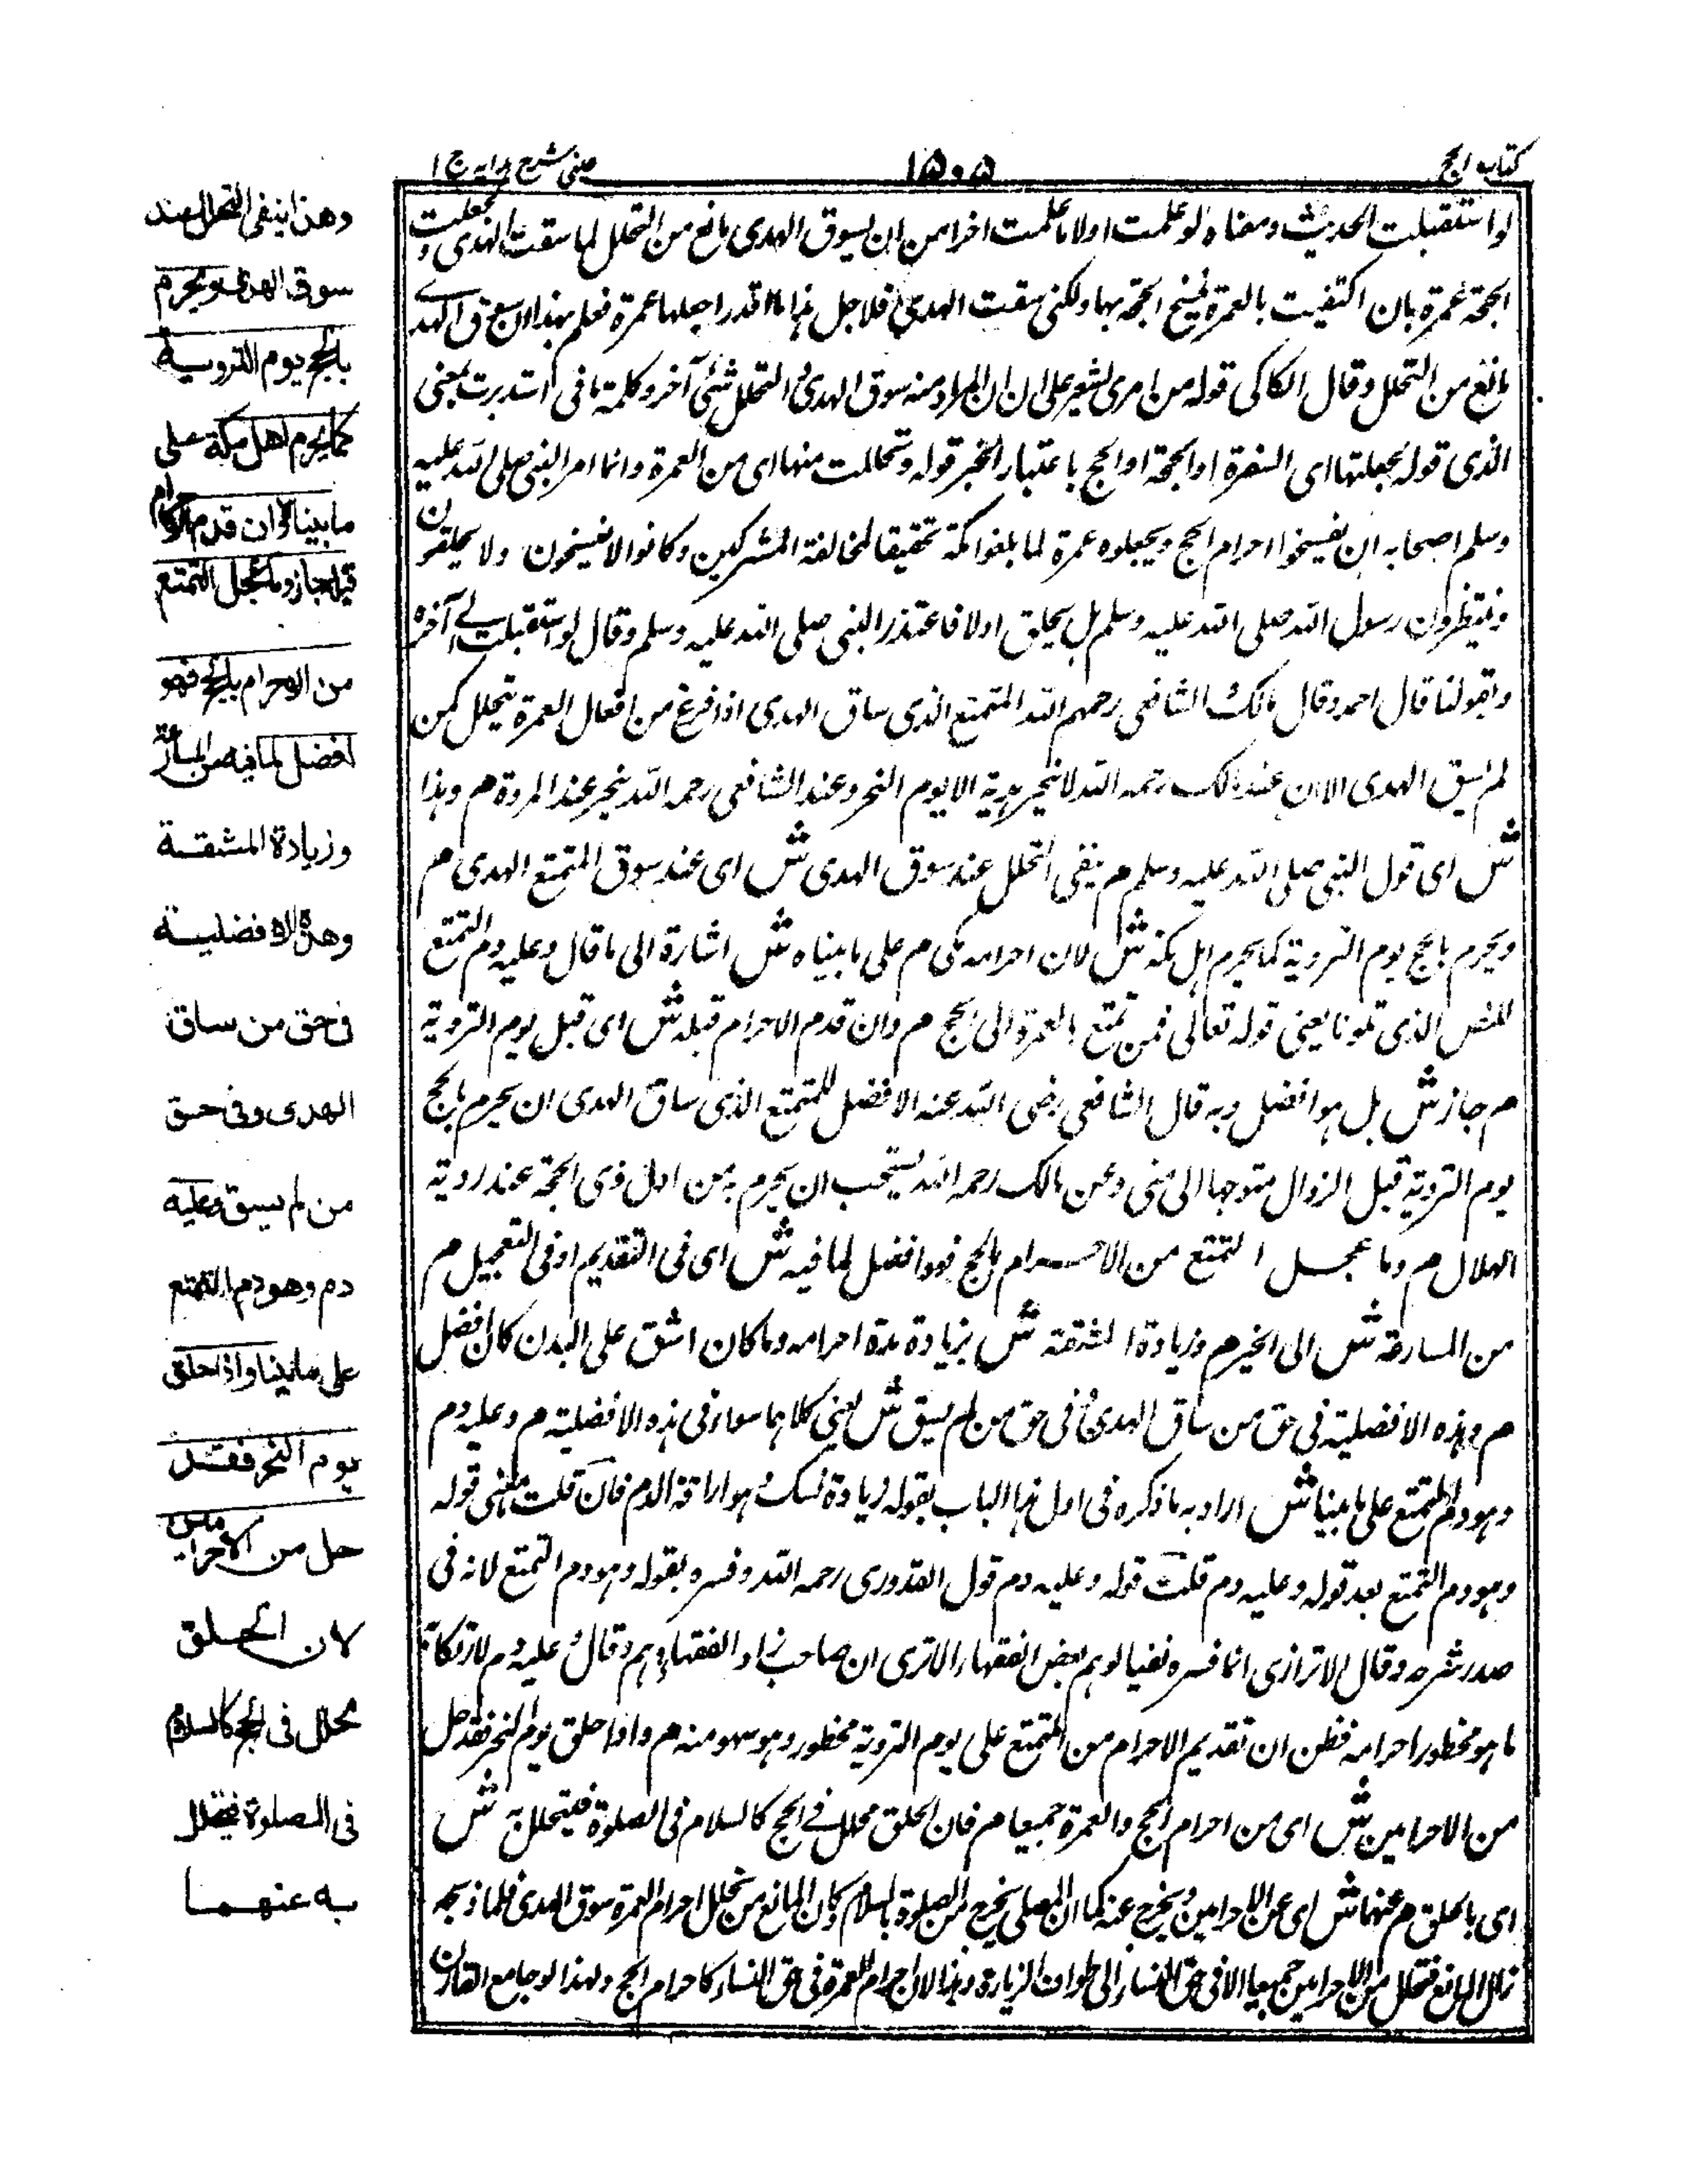 كتاب الحج
١٥٠٥
عینی شرح هدایه ج ١
لو استقبلت الحديث ومعناه لو علمت اولا ما علمت اخرا من ان سوق الهدى مانع من التحلل لما سقت الهدى و لجعلت
الحجة عمرة بان اكتفيت بالعمرة بفسخ الحجة بها ولكنى سقت الهدى فلاجل هذا ما اقدر اجعلها عمرة فعلم بهذا ان سوق الهدى
مانع من التحلل وقال الكاكى قوله من امرى يشير على ان المراد منه سوق الهدى التحلل شئ آخر وكلمة ما فى استدبرت بمعنى
الذى قوله لجعلتها اى السفرة او الحجة او الحج باعتبار الخبر قوله وتحللت منها اى من العمرة وانما امر النبى صلى الله عليه
وسلم اصحابه ان يفسخوا احرام الحج ويجعلوه عمرة لما بلغوا مكة تحقيقا لمخالفة المشركين وكانوا لا يفسخون ولا يحلقون
وينتظرون رسول الله صلى الله عليه وسلم بل يحلق اولا فاعتذر النبى صلى الله عليه وسلم وقال لو استقبلت الى آخره
وبقولنا قال احمد وقال مالك الشافعى رحمهم الله المتمتع الذى ساق الهدى اذا فرغ من افعال العمرة يتحلل كمن
لم يسق الهدى الا ان عند مالك رحمه الله لا ينحر هديه الا يوم النحر وعند الشافعى رحمه الله ينحر عند المروة م وهذا
ش اى قول النبى صلى الله عليه وسلم م ينفى التحلل عند سوق الهدى ش اى عند سوق المتمتع الهدى م
ويحرم بالحج يوم التروية كما يحرم اهل مكة ش لان احرامه مكى م على ما بيناه ش اشارة الى ما قال وعليه دم التمتع
للنص الذى تلونا يعنى قوله تعالى فمن تمتع بالعمرة الى الحج م وان قدم الاحرام قبله ش اى قبل يوم التروية
م جاز ش بل هو افضل وبه قال الشافعى رضى الله عنه الافضل للمتمتع الذى ساق الهدى ان يحرم بالحج
يوم التروية قبل الزوال متوجها الى منى وعن مالك رحمه الله يستحب ان يحرم به من اول ذى الحجة عند رؤية
الهلال م وما عجل المتمتع من الاحرام بالحج فهو افضل لما فيه ش اى فى التقديم او فى التعجيل م
من المسارعة ش الى الخير م وزيادة المشقة ش بزيادة مدة احرامه وما كان اشق على البدن كان افضل
م وهذه الافضلية فى حق من ساق الهدى وفى حق من لم يسق ش يعنى كلاهما سواء فى هذه الافضلية م وعليه دم
وهو دم المتمتع على ما بينا ش اراد به ما ذكره فى اول هذا الباب بقوله زيادة نسك وهو اراقة الدم فان قلت ما معنى قوله
وهو دم التمتع بعد قوله وعليه دم قلت قوله وعليه دم قول القدورى رحمه الله وفسره بقوله وهو دم التمتع لانه فى
صدر شرحه وقال الاترازى انما فسره نفيا لوهم بعض الفقهاء الا ترى ان صاحب زاد الفقهاء وهم وقال عليه دم لارتكابه
ما هو محظور احرامه فظن ان تقديم الاحرام من المتمتع على يوم التروية محظور وهو سهو منه م واذا حلق يوم النحر فقد حل
من الاحرامين ش اى من احرام الحج والعمرة جميعا م فان الحلق محلل فى الحج كالسلام فى الصلوة فيتحلل به ش
اى بالحلق م عنهما ش اى عن الاحرامين ويخرج عنه كما ان المصلى يخرج من الصلوة بالسلام وكان المانع من تحلل احرام العمرة سوق الهدى فلما ذبحه
زال المانع فتحلل من الاحرامين جميعا الا فى حق النساء الى طواف الزيارة وهذا لان احرام العمرة فى حق النساء كاحرام الحج ولهذا لو جامع القارن
وهذا ينفى التحلل عند
سوق الهدى ويحرم
بالحج يوم التروية
كما يحرم اهل مكة على
ما بينا وان قدم الاحرام
قبله جاز وما عجل المتمتع
من الاحرام بالحج فهو
افضل لما فيه من المسارعة
وزيادة المشقة
وهذه الافضلية
فى حق من ساق
الهدى وفى حق
من لم يسق وعليه
دم وهو دم التمتع
على ما بينا واذا حلق
يوم النحر فقد
حل من الاحرامين
لان الحلق
محلل فى الحج كالسلام
فى الصلوة فيتحلل
به عنهما